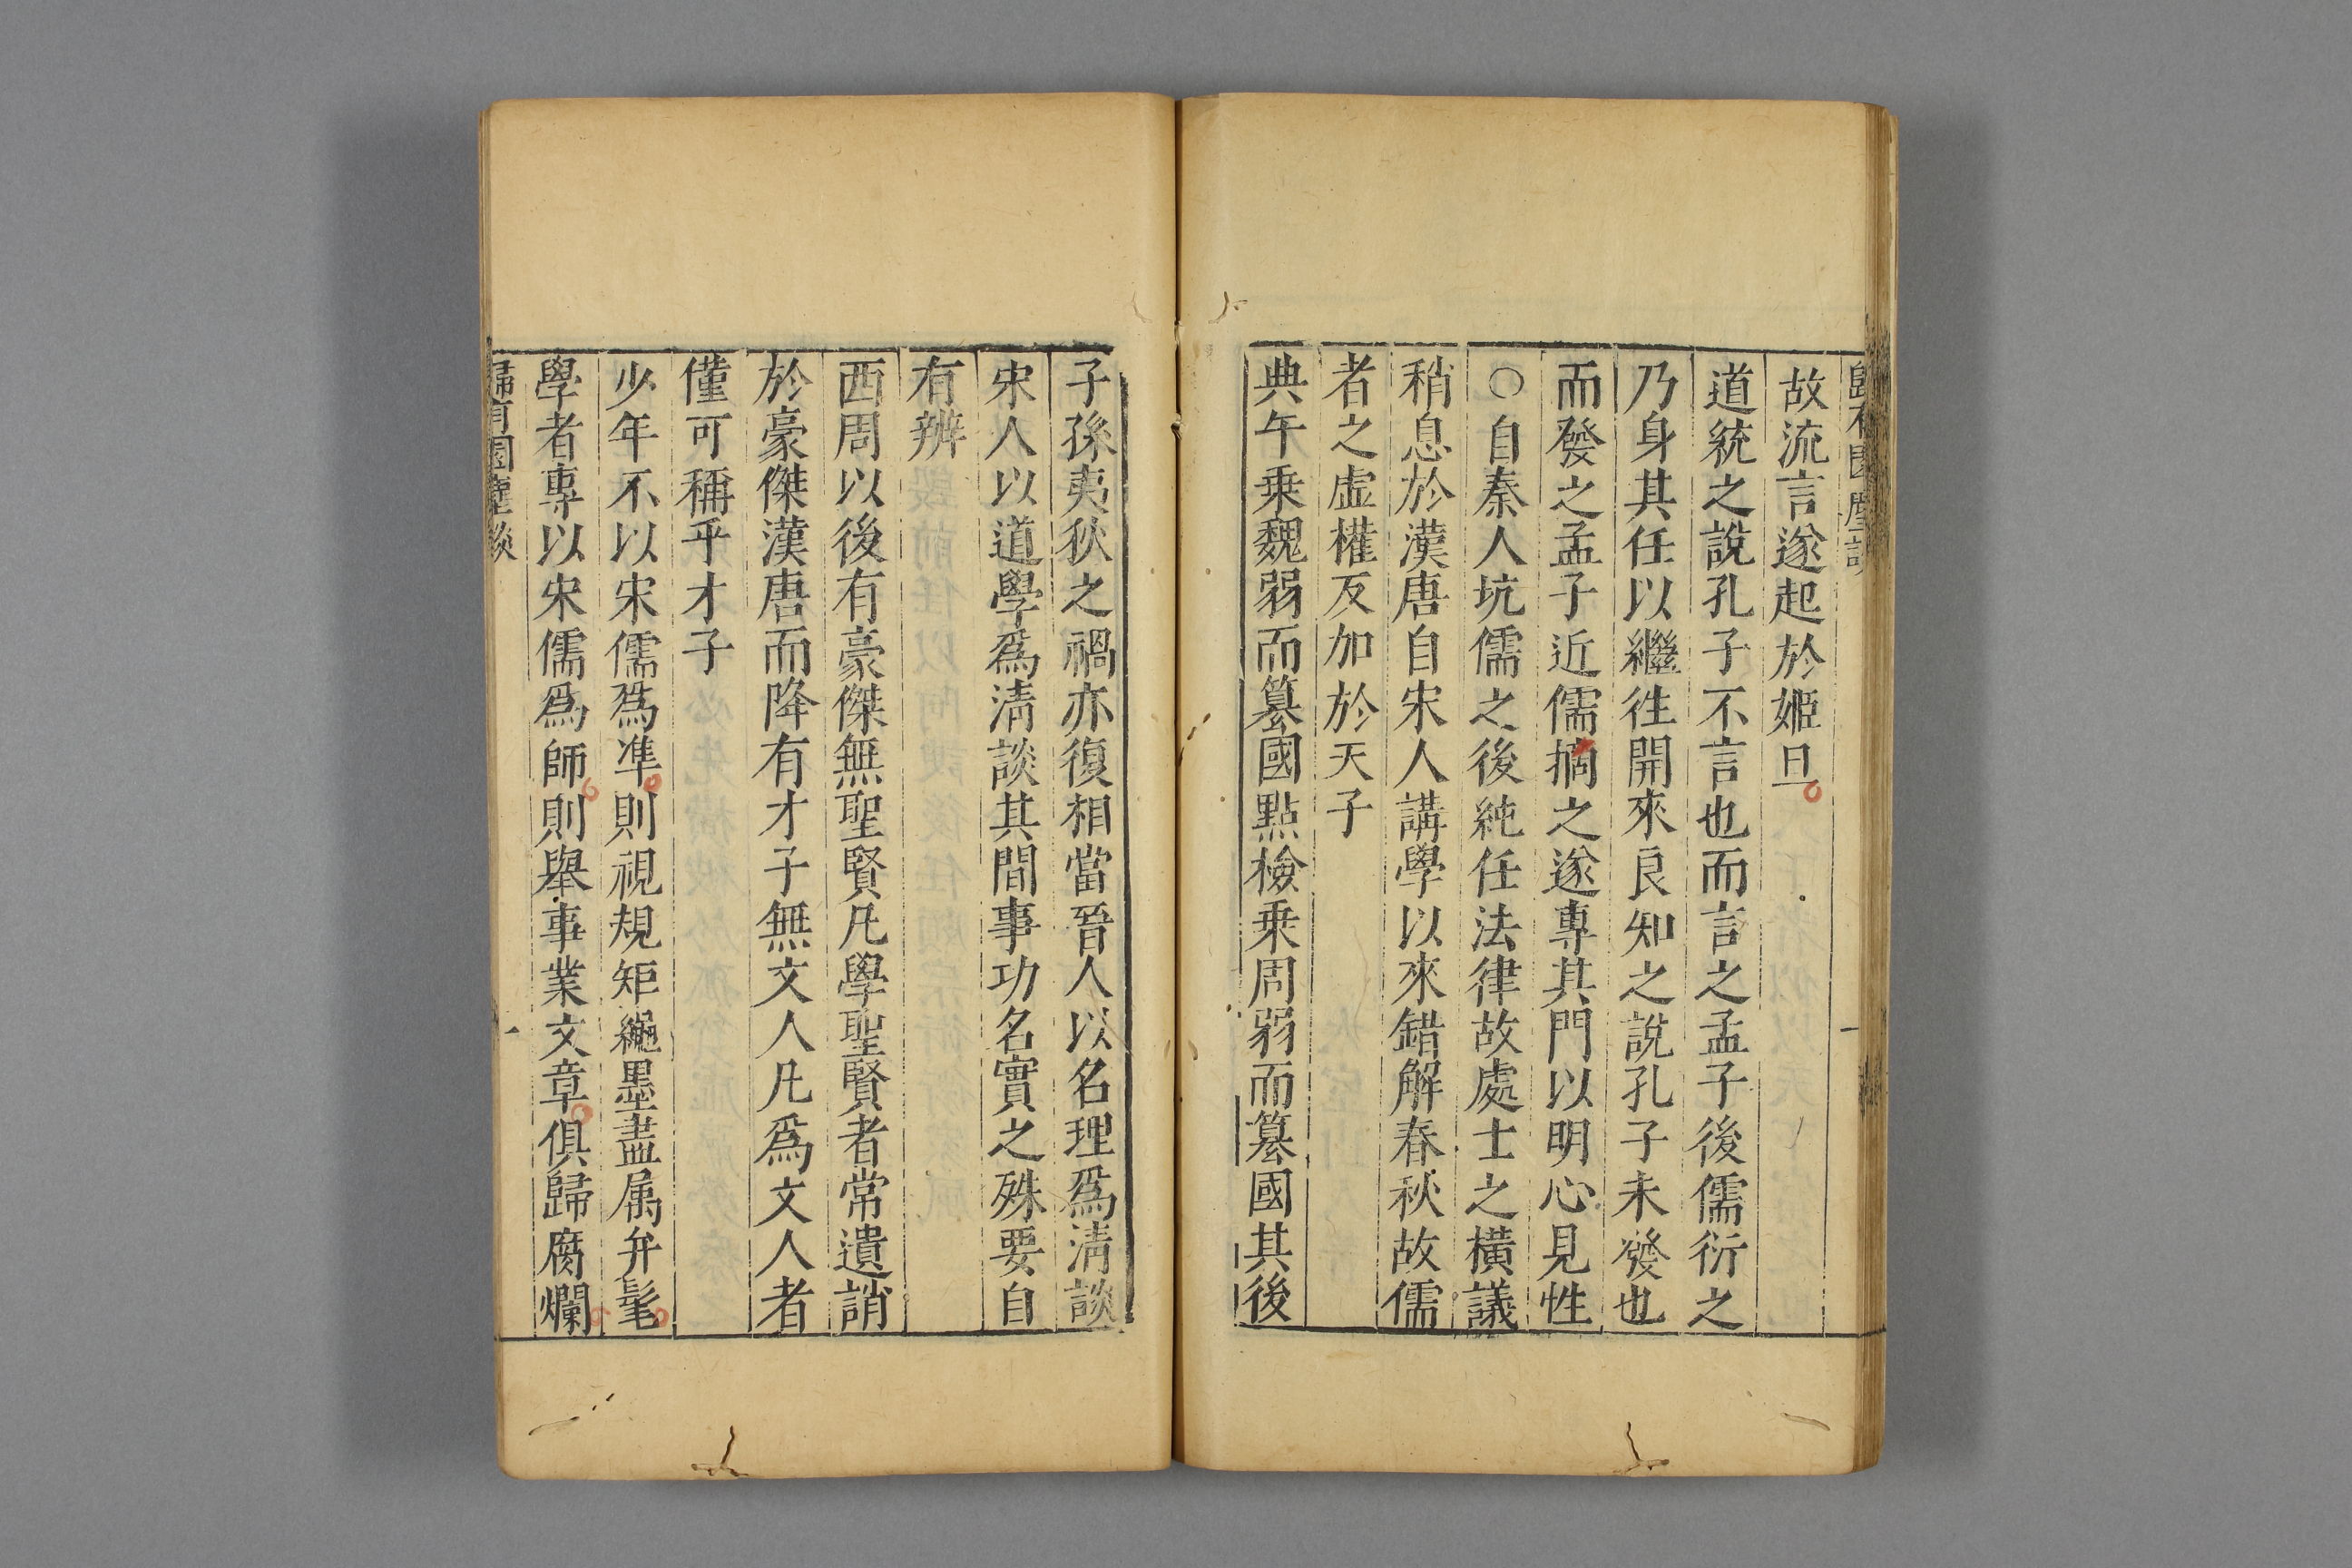 故流言遂起於姬旦
道統之說孔子不言也而言之孟子後儒衍之
乃身其任以繼徃開來良知之說孔子未發也
而發之孟子近儒摘之遂專其門以明心見性
○自秦人坑儒之後純任法律故處士之橫議
稍息於漢唐自宋人講學以來錯解春秋故儒
者之虛權反加於天子
典午乗魏弱而簒國點檢乗周弱而簒國其後
子孫夷狄之禍亦復相當晉人以名理爲淸談
宋人以道學爲淸談其間事功名實之殊要自
有辨
西周以後有豪傑無聖賢凡學聖賢者常遺誚
於豪傑漢唐而降有才子無文人凡爲文人者
僅可稱乎才子
少年不以宋儒爲凖則視規矩繩墨盡属弁髦
學者專以宋儒爲師則舉事業文章俱歸腐爛
歸有園麈談